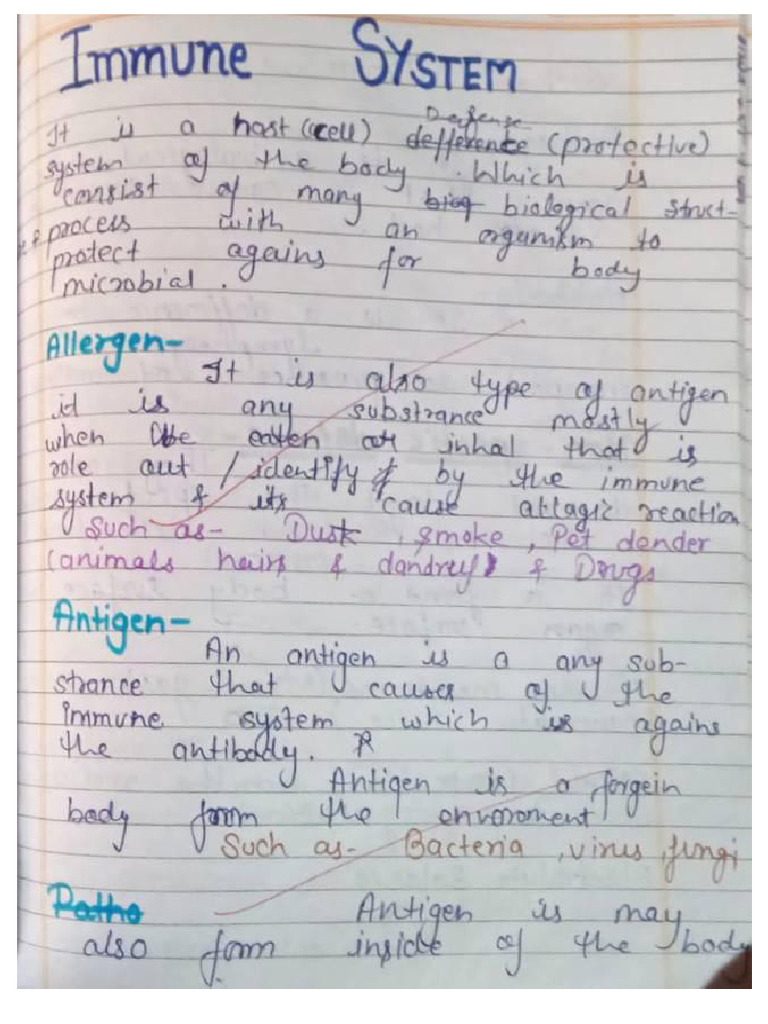 Immune SYSTEM
Defense
It is a host (cell) defference (protective)
system of the body. Which is
consist of many biog biological struct-
process with an organism to
protect agains for body
microbial.
Allergen-
It is also type of antigen
it is any substrance mostly
when be eaten or inhal that is
role out / identify by the immune
system & its cause allagic reaction
Such as- Dust, smoke, Pet dender
(animals hairs & dandrey) & Drugs
Antigen-
An antigen is a any sub-
strance that causes of the
immune system which is agains
the antibody.
Antigen is a forgein
body form the enviroment
Such as- Bacteria, virus, fungi
Patho Antigen is may
also form inside of the body